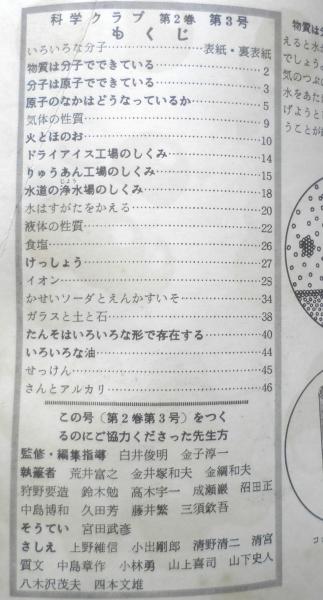 科学クラブ 第2巻 第3号
もくじ
いろいろな分子……表紙・裏表紙
物質は分子でできている……2
分子は原子でできている……3
原子のなかはどうなっているか……5
気体の性質……9
火とほのお……10
ドライアイス工場のしくみ……14
りゅうあん工場のしくみ……15
水道の浄水場のしくみ……18
水はすがたをかえる……20
液体の性質……22
食塩……26
けっしょう……27
イオン……28
かせいソーダとえんかすいそ……34
ガラスと土と石……38
たんそはいろいろな形で存在する……40
いろいろな油……44
せっけん……45
さんとアルカリ……46
この号（第2巻第3号）をつく
るのにご協力くださった先生方
監修・編集指導 白井俊明 金子淳一
執筆者 荒井富之 金井塚和夫 金綱和夫
狩野要造 鈴木勉 高木宇一 成瀬巌 沼田正
中島博和 久田芳 藤井繁 三須欽吾
そうてい 宮田武彦
さしえ 上野維信 小出剛郎 清野清二 清宮
質文 中島章作 小林勇 山上喜司 山下史人
八木沢茂夫 四本文雄
物質は
えると水
でしょう
気のつぶ
水をあた
げようと
うことが